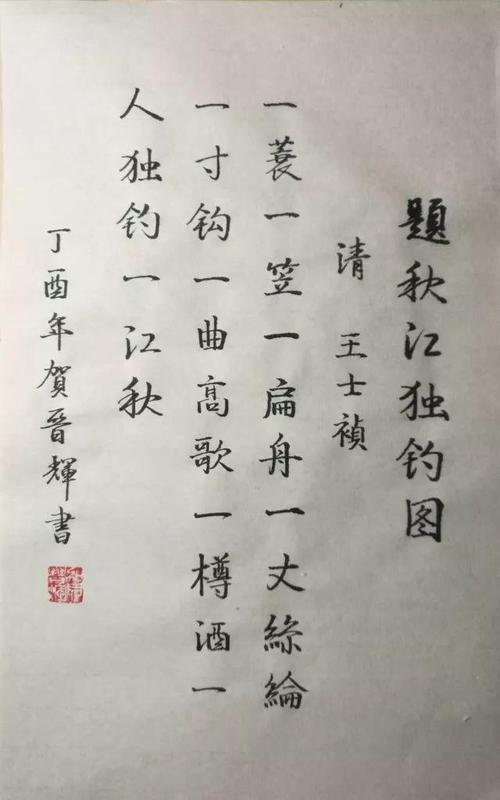 题秋江独钓图
清 王士禎
一蓑一笠一扁舟一丈絲綸
一寸钩一曲高歌一樽酒一
人独钓一江秋
丁酉年贺晋輝書